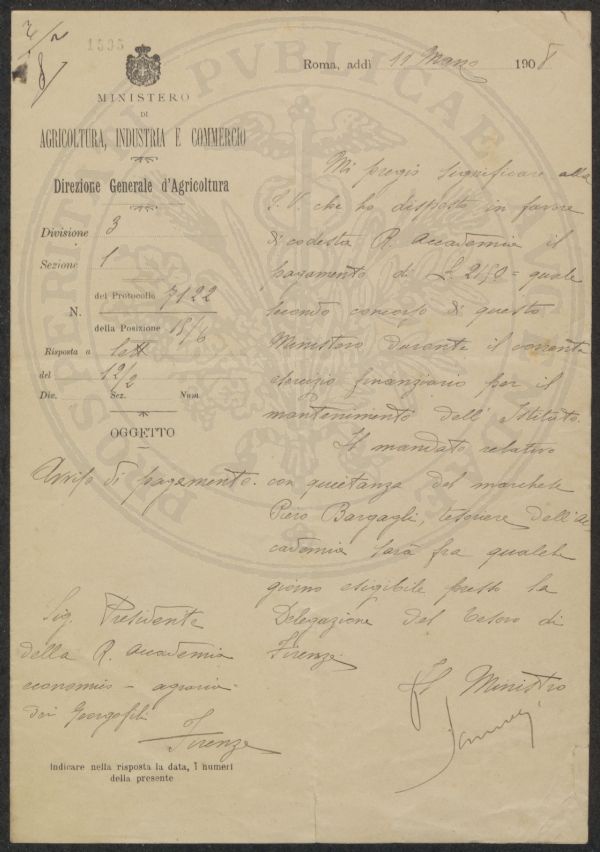 2/2
8/
1595
Roma, addì 19 Marzo 1908
MINISTERO
DI
AGRICOLTURA, INDUSTRIA E COMMERCIO
Direzione Generale d'Agricoltura
Divisione 3
Sezione 1
N. del Protocollo 7122
della Posizione 15/6
Risposta a lett
del 12/2
Div. Sez. Num.
OGGETTO
Avviso di pagamento.
Mi pregio significare alla
S. V. che ho disposto in favore
di codesta R. Accademia il
pagamento di L. quale
secondo concorso di questo
Ministero durante il corrente
esercizio finanziario per il
mantenimento dell'Istituto.
Il mandato relativo
con quietanza del marchese
Piero Bargagli, tesoriere dell'Ac
cademia sarà fra qualche
giorno esigibile presso la
Delegazione del Tesoro di
Firenze.
Il Ministro
Sig. Presidente
della R. Accademia
economico-agraria
dei Georgofili
Firenze
Indicare nella risposta la data, i numeri
della presente
PROSPERITATI PUBLICAE AUGENDAE